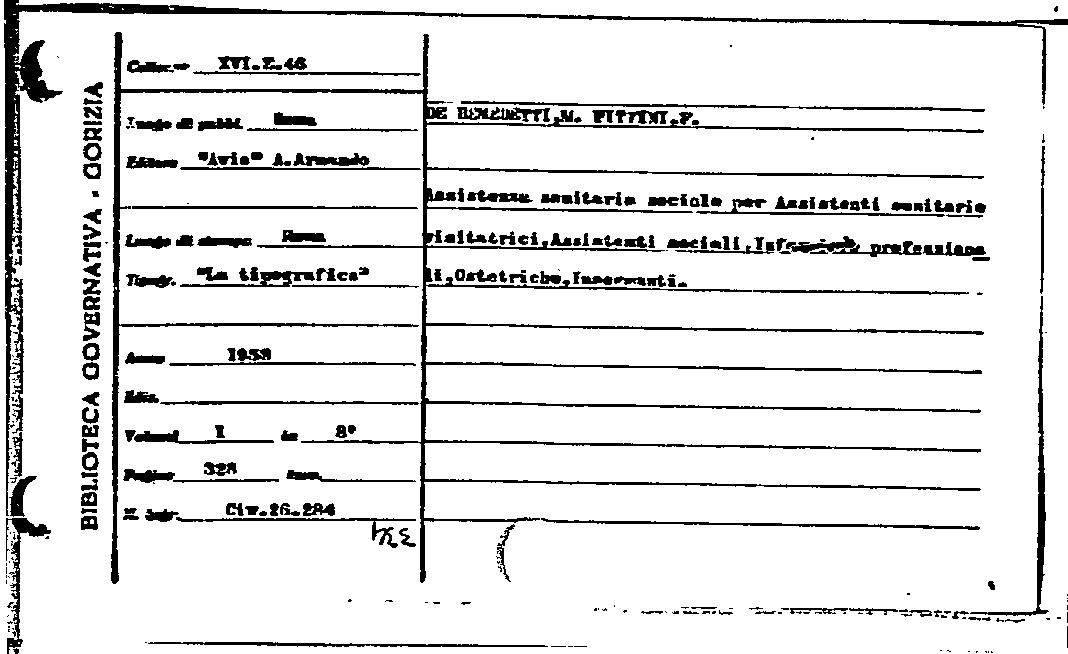 BIBLIOTECA GOVERNATIVA - GORIZIA
Colloc.ne XVI.E.46
Luogo di pubbl. Roma
Editore "Avio" A.Armando
Luogo di stampa Roma
Tipogr. "La tipografica"
Anno 1958
Ediz.
Volumi I in 8°
Pagine 328
N. ingr. Civ.26.284
DE BENEDETTI,M.
Assistenza sanitaria sociale per Assistenti sanitarie
visitatrici,Assistenti sociali, professiona
li,Ostetriche,Insegnanti.